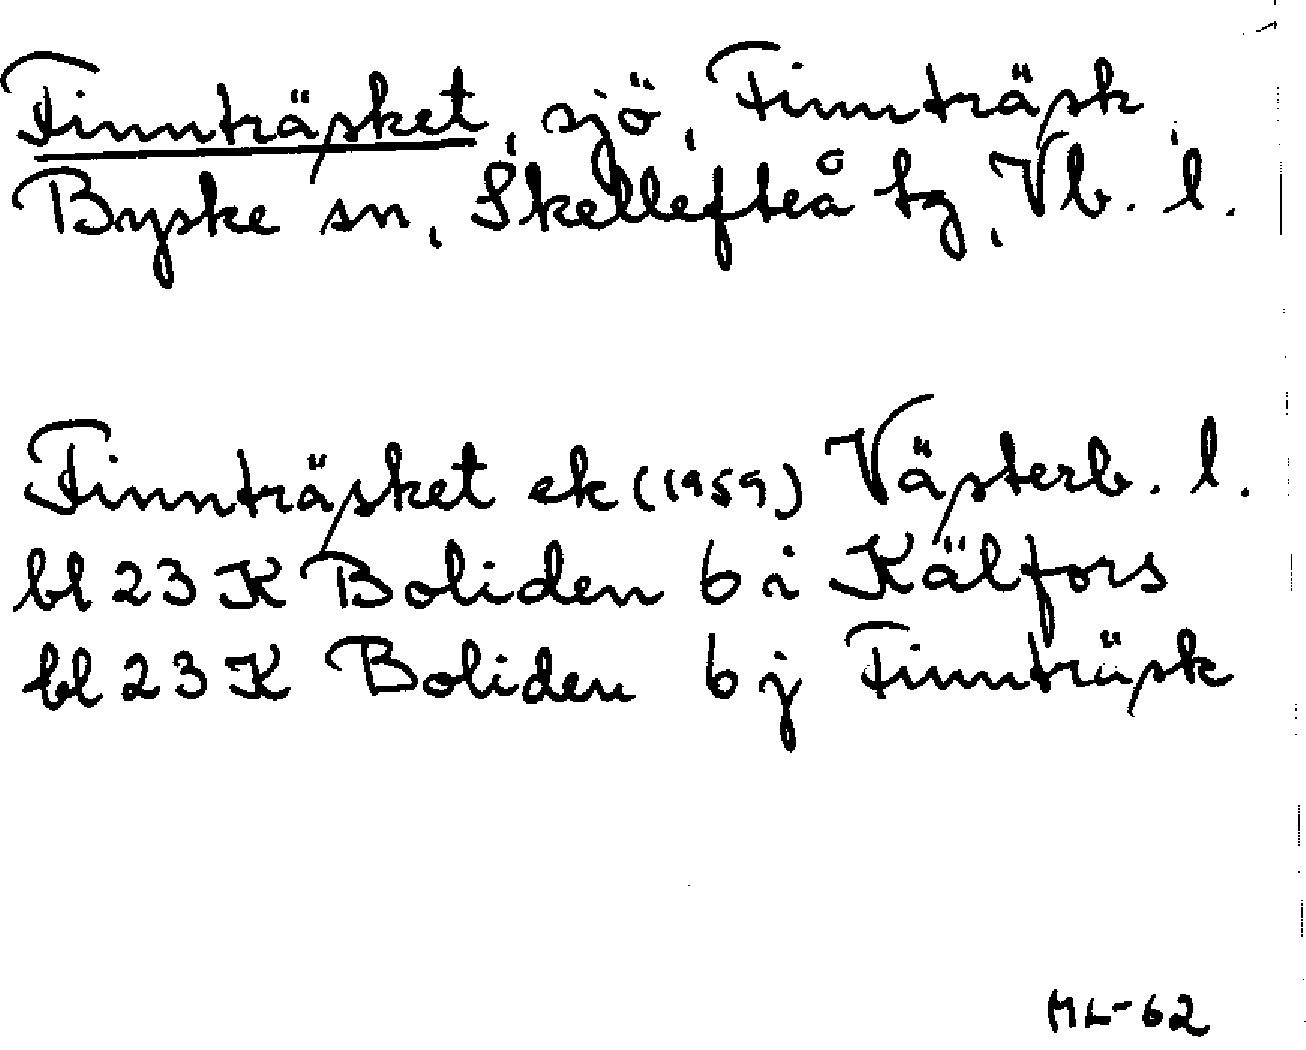 Finnträsket, sjö, Finnträsk,
Byske sn, Skellefteå tg, Vb. l.
Finnträsket ek (1959) Västerb. l.
bl 23 K Boliden 6 i Kälfors
bl 23 K Boliden 6 j Finnträsk
ML-62